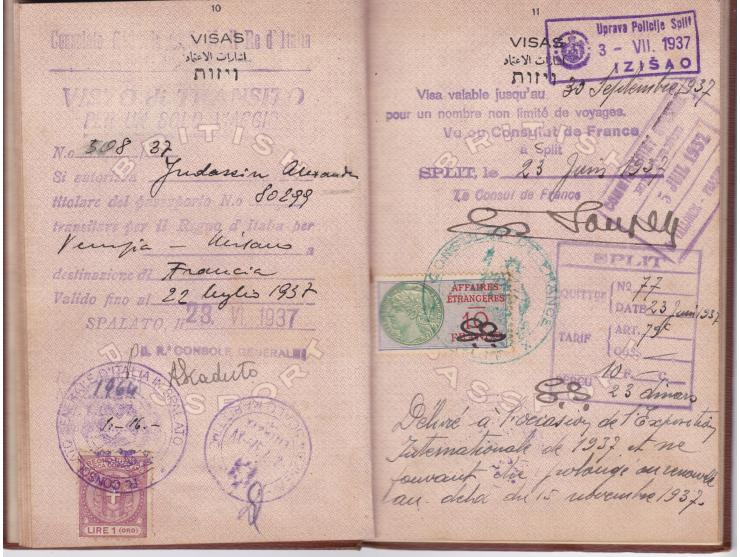 10
VISAS
اشارات الاعتماد
ויזות
VISTO di TRANSITO
PER UN SOLO VIAGGIO
N.o 508 / 37
Si autorizza Judassin Alexander
titolare del passaporto N.o 80299
transitare per il Regno d'Italia per
Venezia - Milano a
destinazione di Francia
Valido fino al 22 luglio 1937
SPALATO, li 23. VI. 1937
IL R.o CONSOLE GENERALE
1964
LIRE 1 (ORO)
BRITISH
PASSPORT
11
VISAS
اشارات الاعتماد
ויזות
Uprava Policije Split
3 - VII. 1937
IZIŠAO
Visa valable jusqu'au 30 Septembre 1937
pour un nombre non limité de voyages.
Vu au Consulat de France
à Split
SPLIT, le 23 Juin 1937
Le Consul de France
CONSULAT DE FRANCE
AFFAIRES
ÉTRANGÈRES
10
SPLIT
QUITTCE
No 77
DATE 23 Juin 1937
TARIF
ART. 79
OBS.
REÇU 10 F. C.
23 dinars
Délivré à l'occasion de l'Exposition
Internationale de 1937 et ne
pouvant être prolongé ou renouvelé
au delà du 15 novembre 1937.